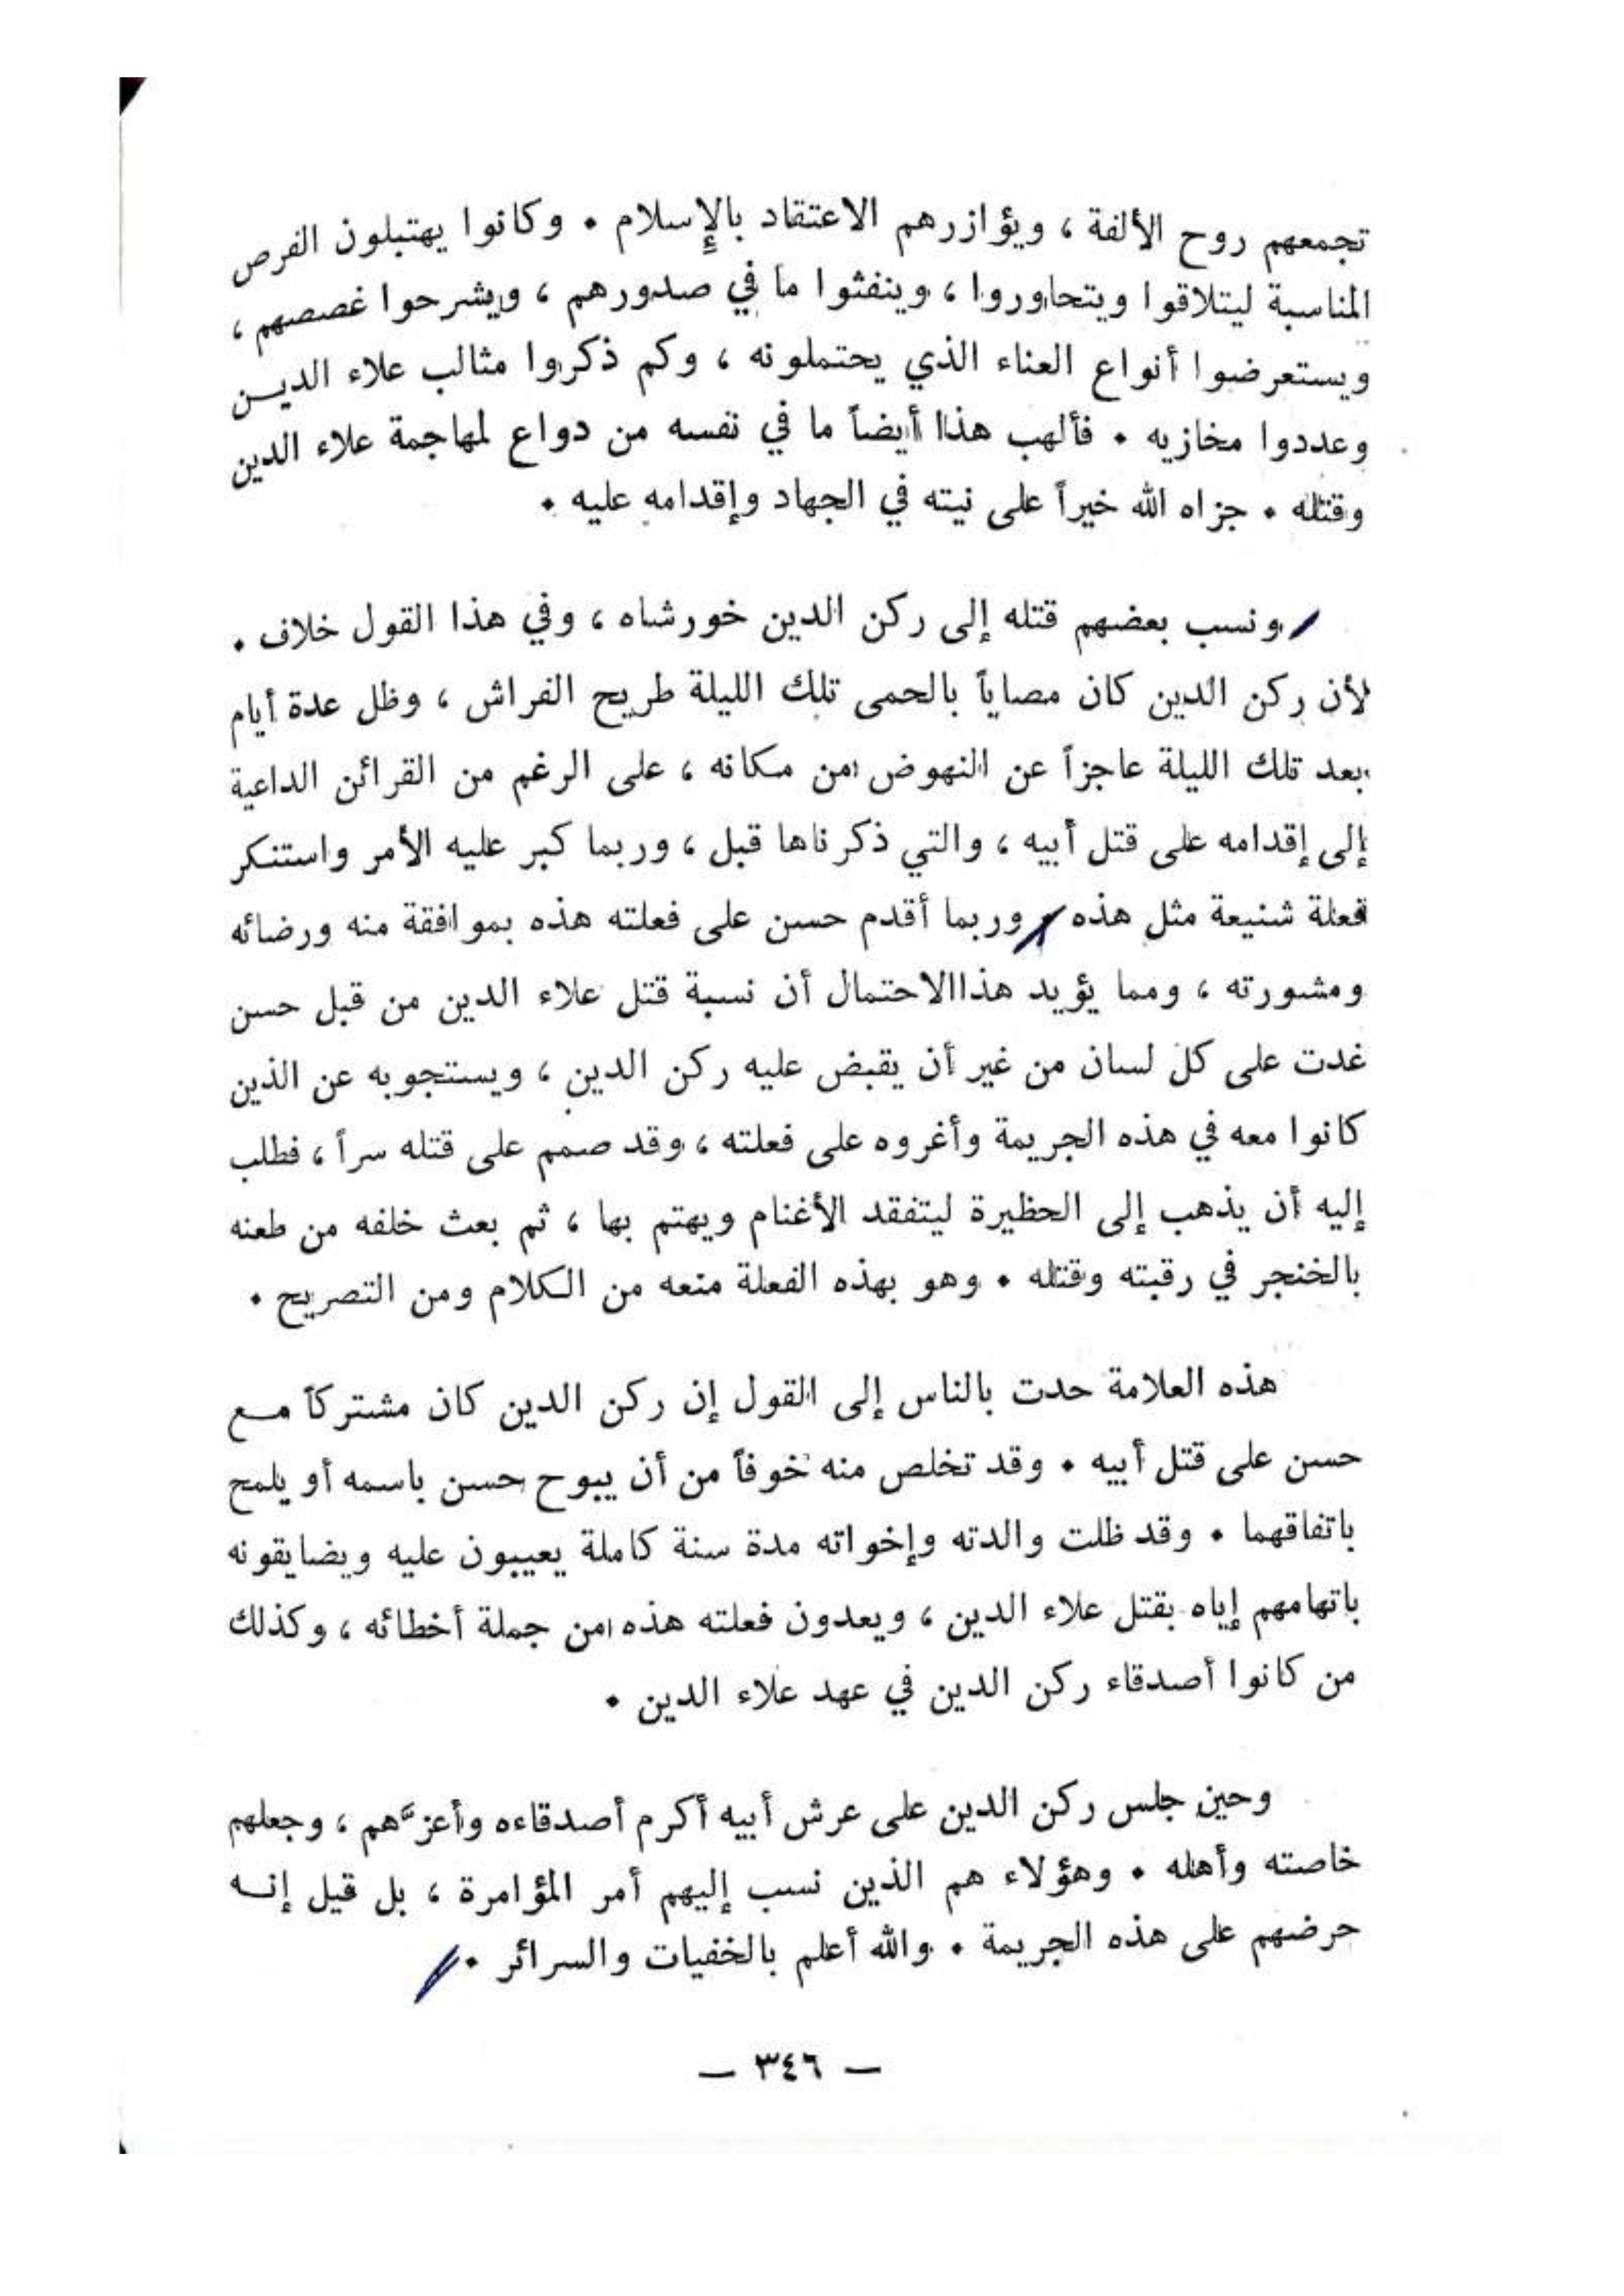 تجمعهم روح الألفة ، ويؤازرهم الاعتقاد بالإسلام . وكانوا يهتبلون الفرص
المناسبة ليتلاقوا ويتحاوروا ، وينفثوا ما في صدورهم ، ويشرحوا غصصهم ،
ويستعرضوا أنواع العناء الذي يحتملونه ، وكم ذكروا مثالب علاء الديـن
وعددوا مخازيه . فألهب هذا أيضاً ما في نفسه من دواع لمهاجمة علاء الدين
وقتله . جزاه الله خيراً على نيته في الجهاد وإقدامه عليه .
ونسب بعضهم قتله إلى ركن الدين خورشاه ، وفي هذا القول خلاف .
لأن ركن الدين كان مصاباً بالحمى تلك الليلة طريح الفراش ، وظل عدة أيام
بعد تلك الليلة عاجزاً عن النهوض من مكانه ، على الرغم من القرائن الداعية
إلى إقدامه على قتل أبيه ، والتي ذكرناها قبل ، وربما كبر عليه الأمر واستنكر
فعلة شنيعة مثل هذه . وربما أقدم حسن على فعلته هذه بموافقة منه ورضائه
ومشورته ، ومما يؤيد هذا الاحتمال أن نسبة قتل علاء الدين من قبل حسن
غدت على كل لسان من غير أن يقبض عليه ركن الدين ، ويستجوبه عن الذين
كانوا معه في هذه الجريمة وأغروه على فعلته ، وقد صمم على قتله سراً ، فطلب
إليه أن يذهب إلى الحظيرة ليتفقد الأغنام ويهتم بها ، ثم بعث خلفه من طعنه
بالخنجر في رقبته وقتله . وهو بهذه الفعلة منعه من الكلام ومن التصريح .
هذه العلامة حدت بالناس إلى القول إن ركن الدين كان مشتركاً مـع
حسن على قتل أبيه . وقد تخلص منه خوفاً من أن يبوح حسن باسمه أو يلمح
باتفاقهما . وقد ظلت والدته وإخواته مدة سنة كاملة يعيبون عليه ويضايقونه
باتهامهم إياه بقتل علاء الدين ، ويعدون فعلته هذه من جملة أخطائه ، وكذلك
من كانوا أصدقاء ركن الدين في عهد علاء الدين .
وحين جلس ركن الدين على عرش أبيه أكرم أصدقاءه وأعزَّهم ، وجعلهم
خاصته وأهله . وهؤلاء هم الذين نسب إليهم أمر المؤامرة ، بل قيل إنـه
حرضهم على هذه الجريمة . والله أعلم بالخفيات والسرائر .
— ٣٤٦ —